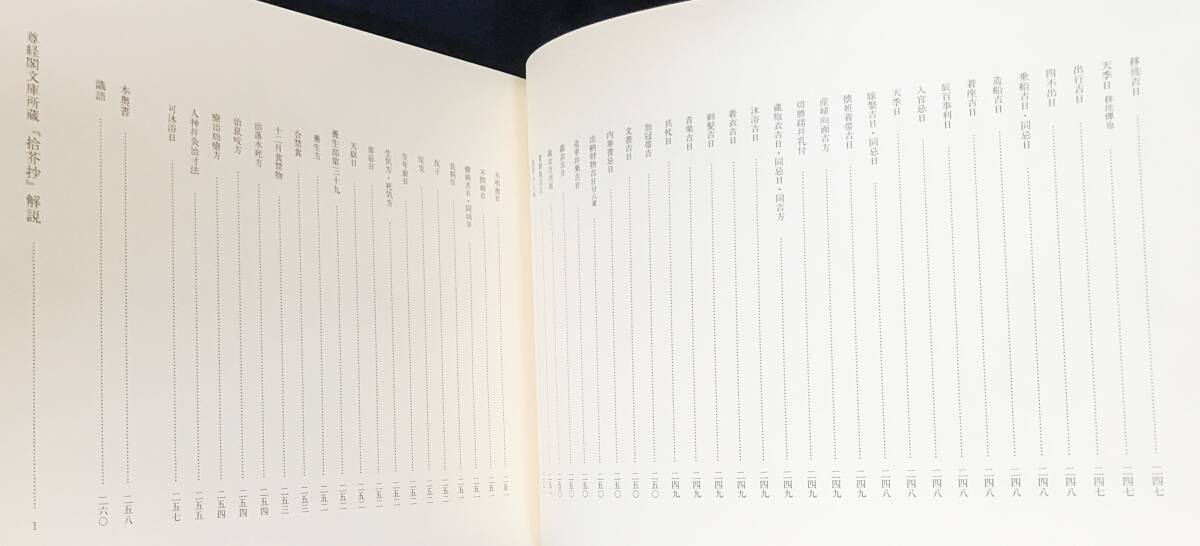 移徙吉日 二四七
天季日 移徙憚也 二四七
出行吉日 二四七
四不出日 二四八
乗船吉日・同忌日 二四八
造船吉日 二四八
着座吉日 二四八
辰百事利日 二四八
入官忌日 二四八
天季日 二四八
嫁娶吉日・同忌日 二四八
懐妊着帯吉日 二四九
産婦向面吉方 二四九
切臍緒并乳付 二四九
蔵胞衣吉日・同忌日・同吉方 二四九
沐浴吉日 二四九
着衣吉日 二四九
剃髪吉日 二四九
音楽吉日 二四九
兵仗日 二四九
加冠帯吉 二五〇
文書吉日 二五〇
内奏書忌日 二五〇
出納財物吉日 二五〇
造車并乗吉日 二五〇
裁衣吉日 二五〇
不弔喪日 二五一
不問病日 二五一
療病吉日・同凶日 二五一
長病日 二五二
反子 二五二
反支 二五二
生年衰日 二五二
生気方・死気方 二五二
血忌日 二五二
天獄日 二五二
養生部第三十九 二五二
養生方 二五二
合禁食 二五三
十二月食禁物 二五三
治落水死方 二五四
治鼠咬方 二五四
療治瘡方 二五四
人神并灸治寸法 二五五
可沐浴日 二五七
本奥書 二五八
識語 二六〇
尊経閣文庫所蔵『拾芥抄』解説 1